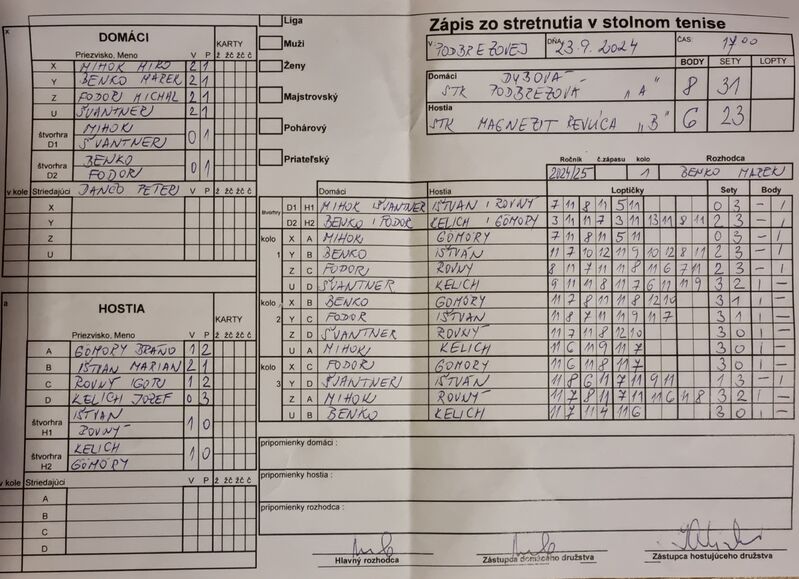 Zápis zo stretnutia v stolnom tenise
V PODBREZOVEJ DŇA 23.9.2024 ČAS: 17:00
BODY SETY LOPTY
Domáci DUBOVÁ
STK PODBREZOVÁ "A" 8 31
Hostia
STK MAGNEZIT REVÚCA "B" 6 23
Ročník č.zápasu kolo Rozhodca
2024/25 1 BENKO MAREK
Liga
Muži
Ženy
Majstrovský
Pohárový
Priateľský
DOMÁCI
Priezvisko, Meno V P KARTY
ž žč žč č
X MIHOK MIRO 2 1
Y BENKO MAREK 2 1
Z FODOR MICHAL 2 1
U ŠVANTNER 2 1
štvorhra D1 MIHOK ŠVANTNER 0 1
štvorhra D2 BENKO FODOR 0 1
v kole Striedajúci DANČO PETER V P ž žč žč č
X
Y
Z
U
HOSTIA
Priezvisko, Meno V P KARTY
ž žč žč č
A GÖMÖRY BRAŇO 1 2
B IŠTVÁN MARIÁN 2 1
C ROVNÝ IGOR 1 2
D KELICH JOZEF 0 3
štvorhra H1 IŠTVAN ROVNÝ 1 0
štvorhra H2 KELICH GÖMÖRY 1 0
v kole Striedajúci V P ž žč žč č
A
B
C
D
Domáci Hostia Loptičky Sety Body
štvorhry D1 H1 MIHOK ŠVANTNER IŠTVÁN : ROVNÝ 7 11 8 11 5 11 0 3 – 1
D2 H2 BENKO : FODOR KELICH : GÖMÖRY 3 11 11 7 3 11 13 11 8 11 2 3 – 1
kolo X A MIHOK GÖMÖRY 7 11 8 11 5 11 0 3 – 1
1 Y B BENKO IŠTVÁN 11 7 10 12 11 9 10 12 8 11 2 3 – 1
Z C FODOR ROVNÝ 8 11 7 11 11 8 11 6 7 11 2 3 – 1
U D ŠVANTNER KELICH 9 11 11 8 11 7 6 11 11 9 3 2 1 –
kolo X B BENKO GÖMÖRY 11 7 8 11 11 8 12 10 3 1 1 –
2 Y C FODOR IŠTVAN 11 8 7 11 11 9 11 7 3 1 1 –
Z D ŠVANTNER ROVNÝ 11 7 11 8 12 10 3 0 1 –
U A MIHOK KELICH 11 6 11 9 11 7 3 0 1 –
kolo X C FODOR GÖMÖRY 11 6 11 8 11 7 3 0 1 –
3 Y D ŠVANTNER IŠTVÁN 11 8 6 11 7 11 9 11 1 3 – 1
Z A MIHOK ROVNÝ 11 7 8 11 7 11 11 6 11 8 3 2 1 –
U B BENKO KELICH 11 7 11 4 11 6 3 0 1 –
pripomienky domáci :
pripomienky hostia :
pripomienky rozhodca :
Hlavný rozhodca
Zástupca domáceho družstva
Zástupca hostujúceho družstva